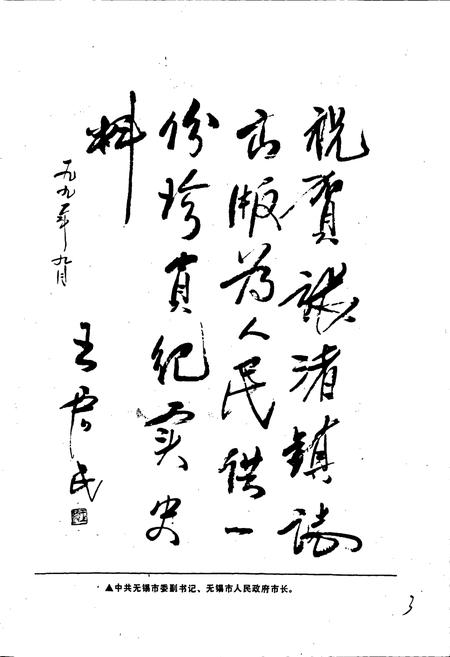 祝贺张渚镇志
出版为人民供一
份珍贵纪实史
料
一九九一年九月
王君民
▲中共无锡市委副书记、无锡市人民政府市长。
3